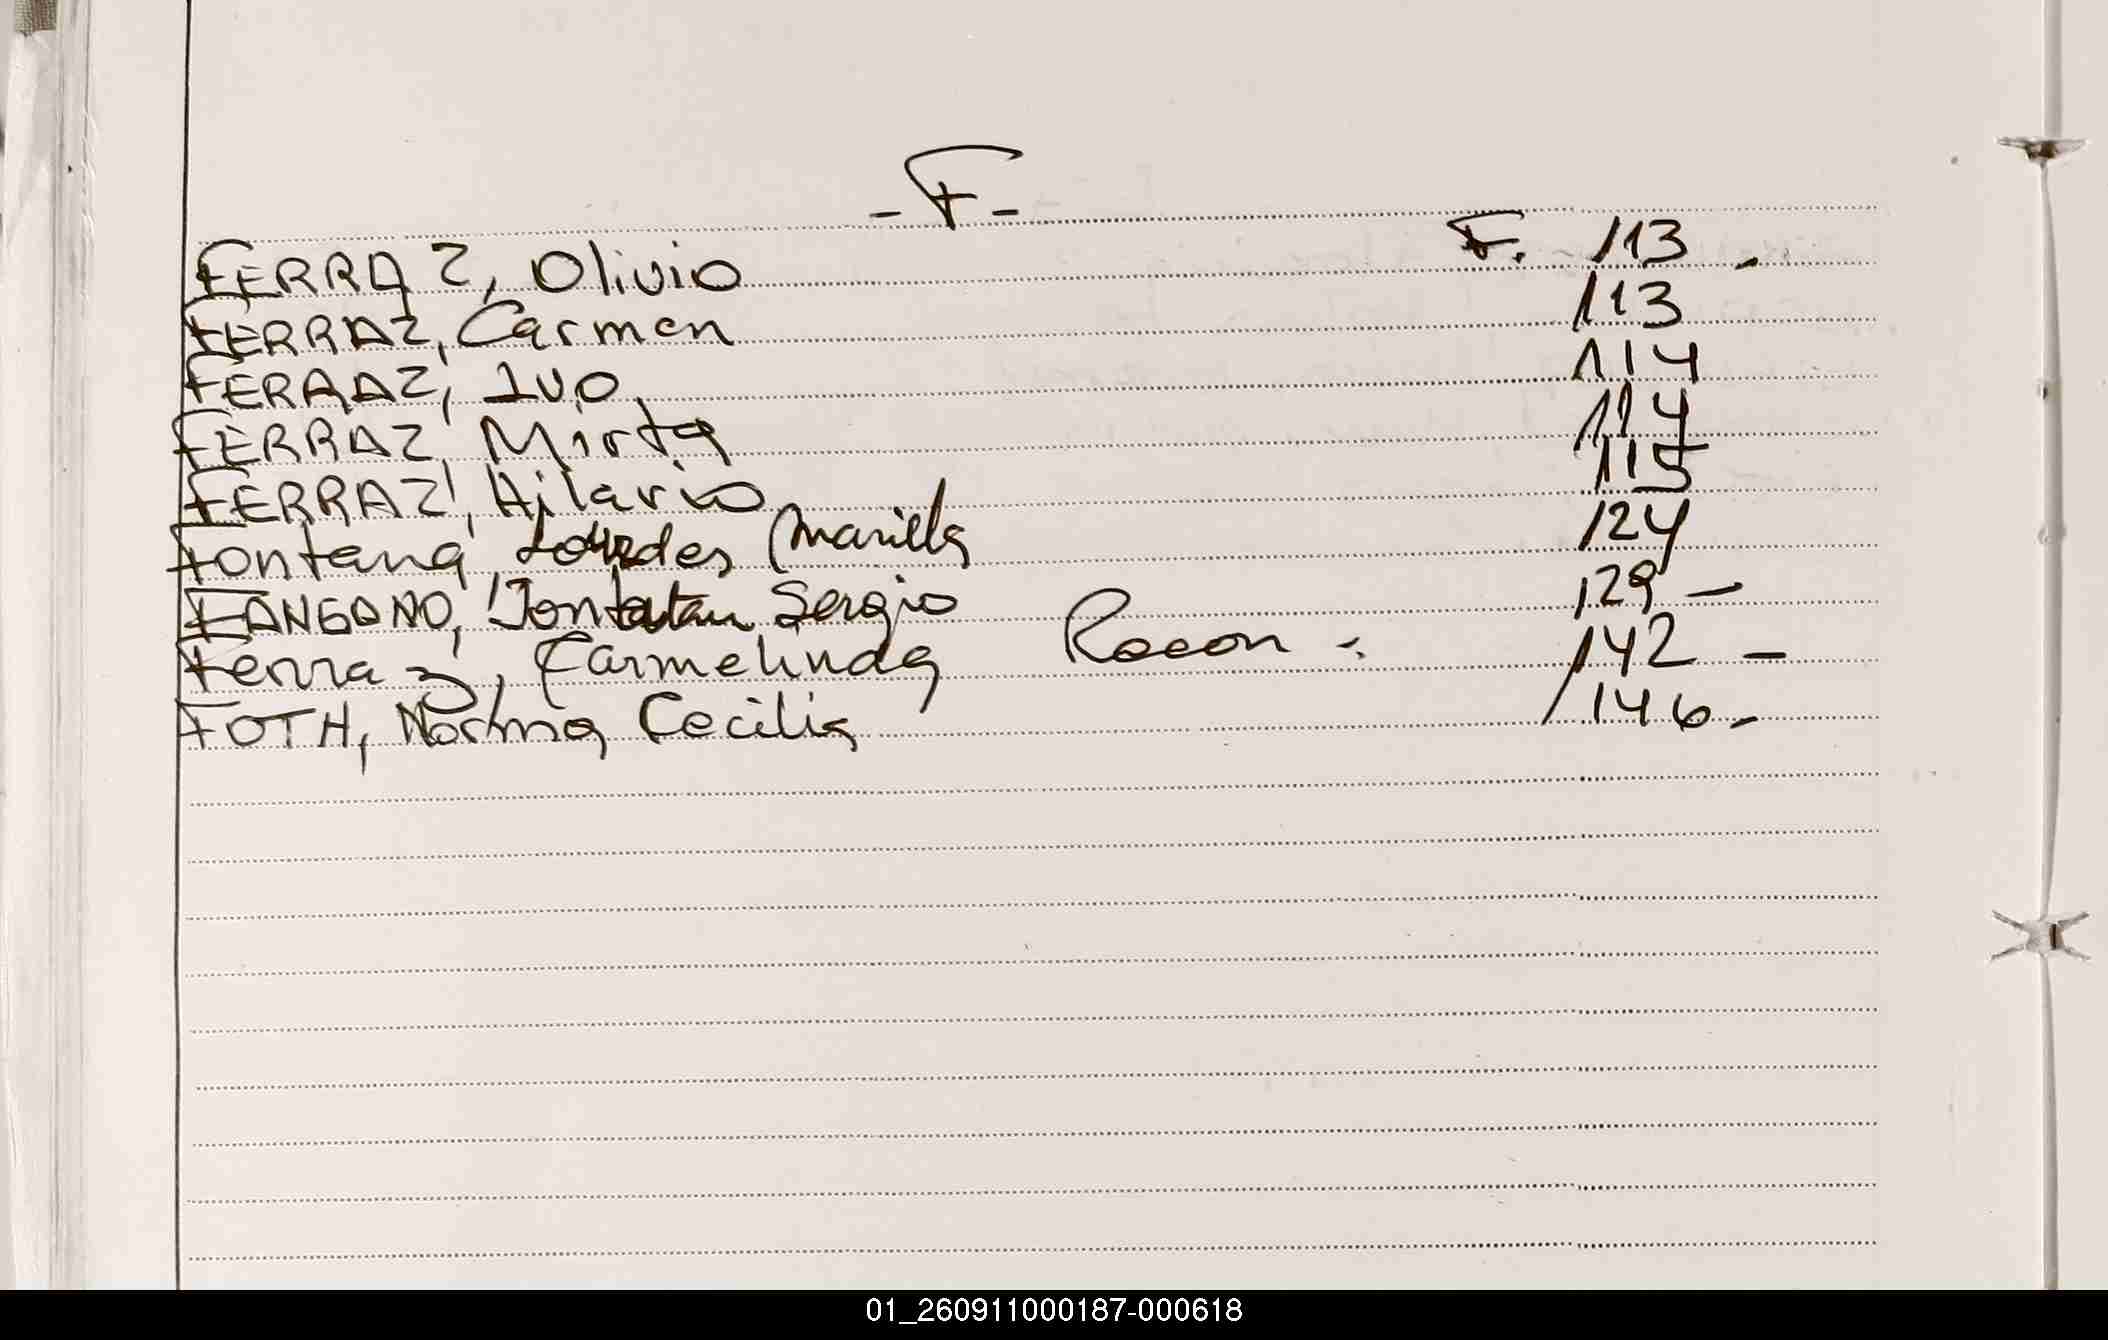 - F -
FERRAZ, Olivio F. 113 -
FERRAZ, Carmen 113
FERRAZ, Ivo 114
FERRAZ, Mirta 114
FERRAZ, Hilario 115
Fontana, Lourdes Mariela 124
Sergio 129 -
Ferraz, Carmelinda 142 -
FOTH, Norma Cecilia 146 -
01_260911000187-000618